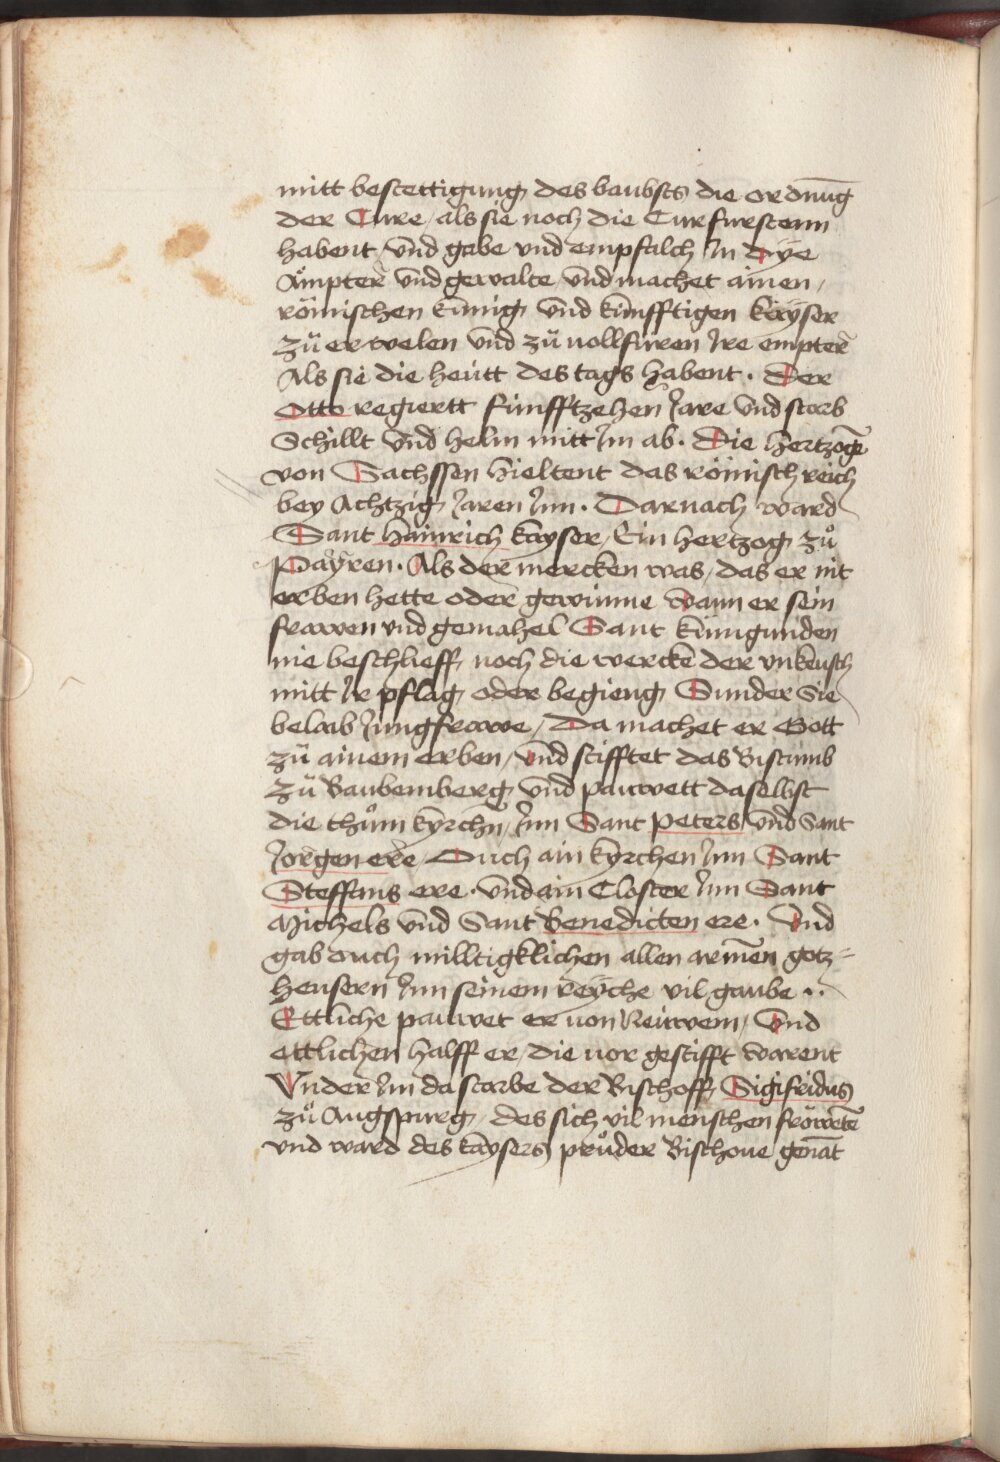 mitt bestettigung des baubsts die ordnūg
der Cure / als sie noch die Curfurstenn
habent / vnd gabe vnd empfalch In dye
Ämpter vnd gewalte / vnd machet ainen /
römischen künig vnd künfftigen kayser
zü erwelen vnd zü uollfüren Ire empter
Als sie die heütt des tags habent · Der
Otto regiertt fünfftzehen Jare vnd starb
Schillt vnd helm mitt Im ab · Die hertzogē
von Sachssen hieltent das römisch reich
bey Achtzig Jaren Inn · Darnach ward
Sant hainrich kayser / Ein hertzog zů
Payren · Als der mercken was / das er nit
erben hette oder gewinne wann er sein
frawen vnd gemahel Sant küngunden
nie beschlieff / noch die wercke der vnkeusch
mitt Ir pflag oder begieng Sunder Sie
belaib Jungfrawe / Da machet er Gott
zü ainem erben / vnd stifftet das Bistumb
zü Baubemberg vnd pauwett daselbst
die thům kyrchn̄ / Inn Sant peters vnd Sant
Jorgen ere / Ouch ain kyrchen Inn Sant
Steffans ere · vnd ain Closter Inn Sant
Michels vnd Sant benedicten ere · Vnd
gab ouch milltigklichen allen armen gotz=
heusern Inn seinem reyche vil gaube ··
Ettliche pauwet er von Neüwem / Vnd
ettlichen halff er / die uor gestifft warent
Vnder Im da starbe der Bischoff Sigifridus
zů Augspurg / des sich vil menschen fröwetē
vnd ward des kaysers průder Bischoue genāt